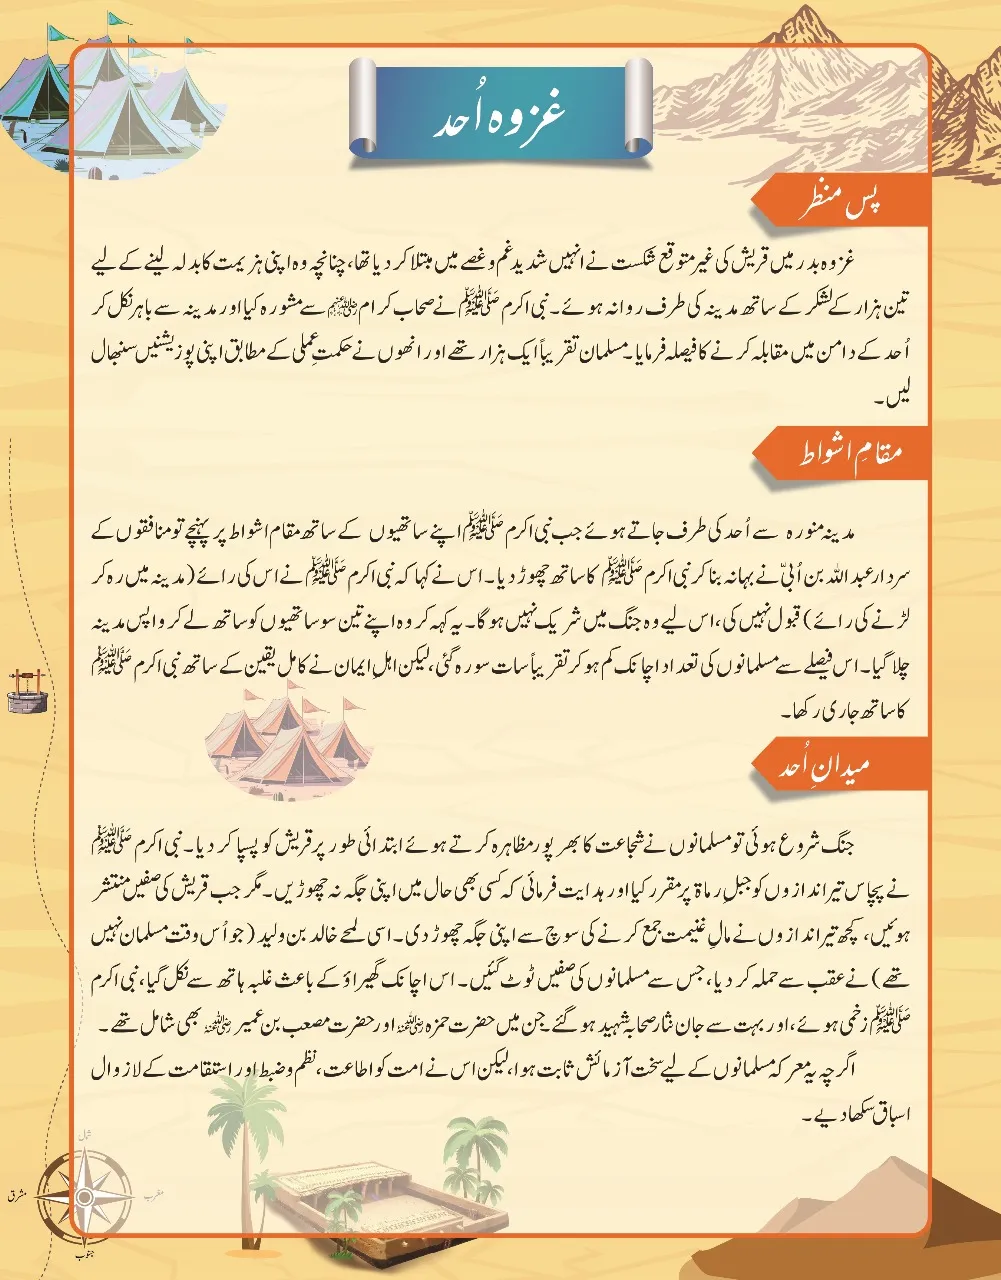 غزوہ اُحد
پس منظر
غزوہ بدر میں قریش کی غیر متوقع شکست نے انہیں شدید غم و غصے میں مبتلا کر دیا تھا، چنانچہ وہ اپنی ہزیمت کا بدلہ لینے کے لیے
تین ہزار کے لشکر کے ساتھ مدینہ کی طرف روانہ ہوئے۔ نبی اکرم ﷺ نے صحابہ کرام رضی اللہ عنہم سے مشورہ کیا اور مدینہ سے باہر نکل کر
اُحد کے دامن میں مقابلہ کرنے کا فیصلہ فرمایا۔ مسلمان تقریباً ایک ہزار تھے اور انھوں نے حکمتِ عملی کے مطابق اپنی پوزیشنیں سنبھال
لیں۔
مقامِ اشواط
مدینہ منورہ سے اُحد کی طرف جاتے ہوئے جب نبی اکرم ﷺ اپنے ساتھیوں کے ساتھ مقام اشواط پر پہنچے تو منافقوں کے
سردار عبد اللہ بن اُبیّ نے بہانہ بنا کر نبی اکرم ﷺ کا ساتھ چھوڑ دیا۔ اس نے کہا کہ نبی اکرم ﷺ نے اس کی رائے (مدینہ میں رہ کر
لڑنے کی رائے) قبول نہیں کی، اس لیے وہ جنگ میں شریک نہیں ہو گا۔ یہ کہہ کر وہ اپنے تین سو ساتھیوں کو ساتھ لے کر واپس مدینہ
چلا گیا۔ اس فیصلے سے مسلمانوں کی تعداد اچانک کم ہو کر تقریباً سات سو رہ گئی، لیکن اہلِ ایمان نے کامل یقین کے ساتھ نبی اکرم ﷺ
کا ساتھ جاری رکھا۔
میدانِ اُحد
جنگ شروع ہوئی تو مسلمانوں نے شجاعت کا بھرپور مظاہرہ کرتے ہوئے ابتدائی طور پر قریش کو پسپا کر دیا۔ نبی اکرم ﷺ
نے پچاس تیر اندازوں کو جبلِ رماۃ پر مقرر کیا اور ہدایت فرمائی کہ کسی بھی حال میں اپنی جگہ نہ چھوڑیں۔ مگر جب قریش کی صفیں منتشر
ہوئیں، کچھ تیر اندازوں نے مالِ غنیمت جمع کرنے کی سوچ سے اپنی جگہ چھوڑ دی۔ اسی لمحے خالد بن ولید (جو اُس وقت مسلمان نہیں
تھے) نے عقب سے حملہ کر دیا، جس سے مسلمانوں کی صفیں ٹوٹ گئیں۔ اس اچانک گھیراؤ کے باعث غلبہ ہاتھ سے نکل گیا، نبی اکرم
ﷺ زخمی ہوئے، اور بہت سے جان نثار صحابہ شہید ہو گئے جن میں حضرت حمزہ رضی اللہ عنہ اور حضرت مصعب بن عمیر رضی اللہ عنہ بھی شامل تھے۔
اگرچہ یہ معرکہ مسلمانوں کے لیے سخت آزمائش ثابت ہوا، لیکن اس نے امت کو اطاعت، نظم و ضبط اور استقامت کے لازوال
اسباق سکھا دیے۔
شمال
مغرب
مشرق
جنوب